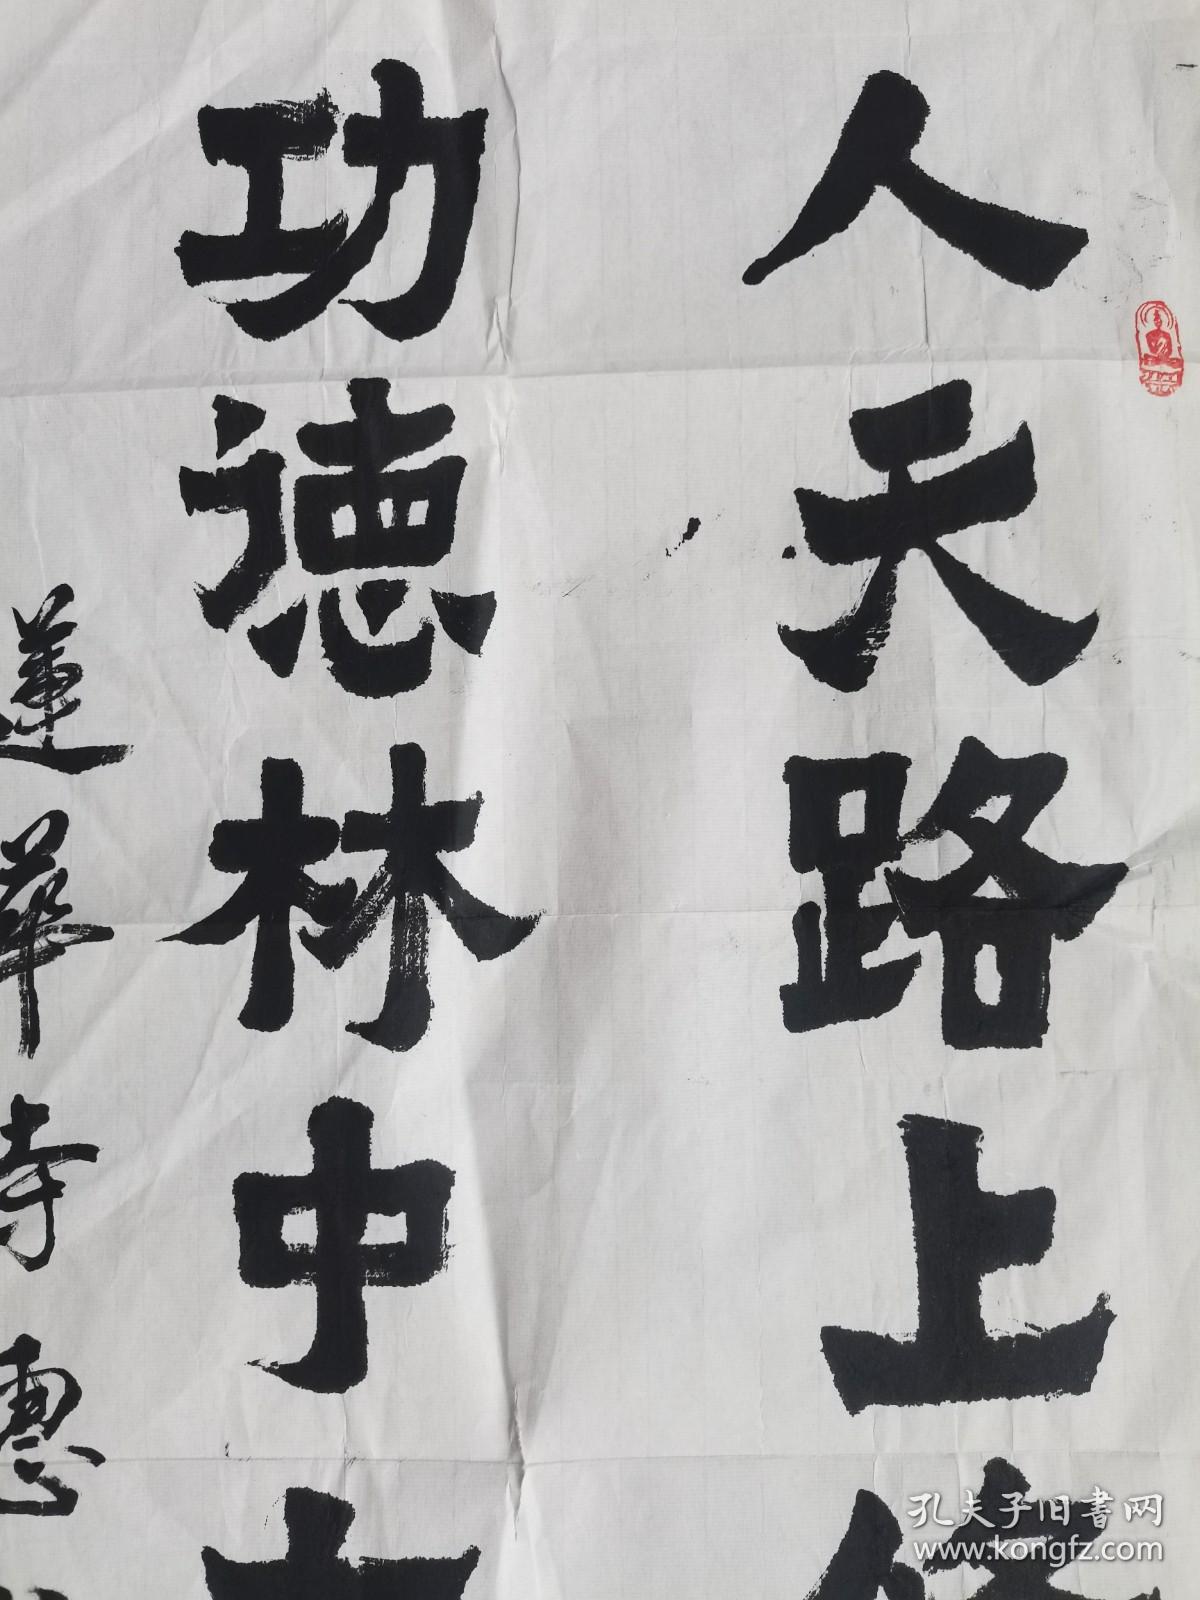 人天路上修
功德林中
蓮華寺惠
孔夫子旧書网
www.kongfz.com